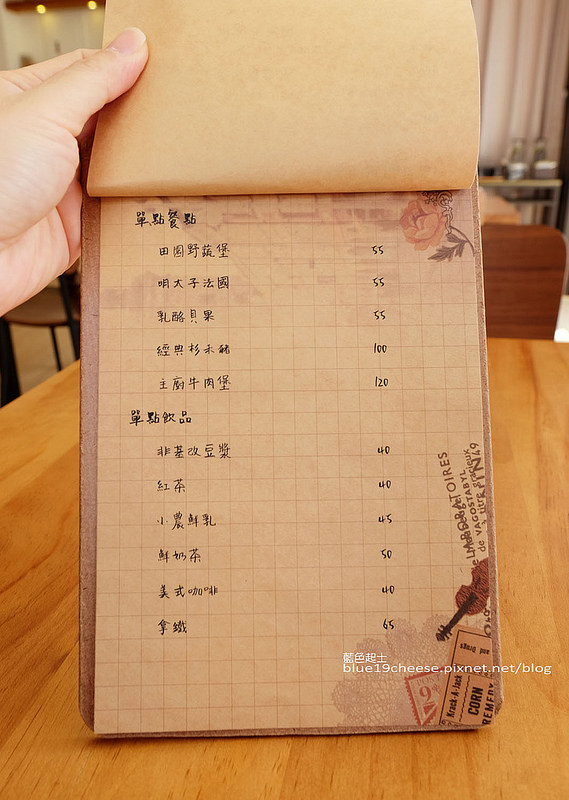 單點餐點
田園野蔬堡 55
明太子法國 55
乳酪貝果 55
經典杉禾豬 100
主廚牛肉堡 120
單點飲品
非基改豆漿 40
紅茶 40
小農鮮乳 45
鮮奶茶 50
美式咖啡 40
拿鐵 65
藍色起士
blue19cheese.pixnet.net/blog
de VAGOSTABYL
POST
9
Krack-A-Jack
CORN
REMEDY